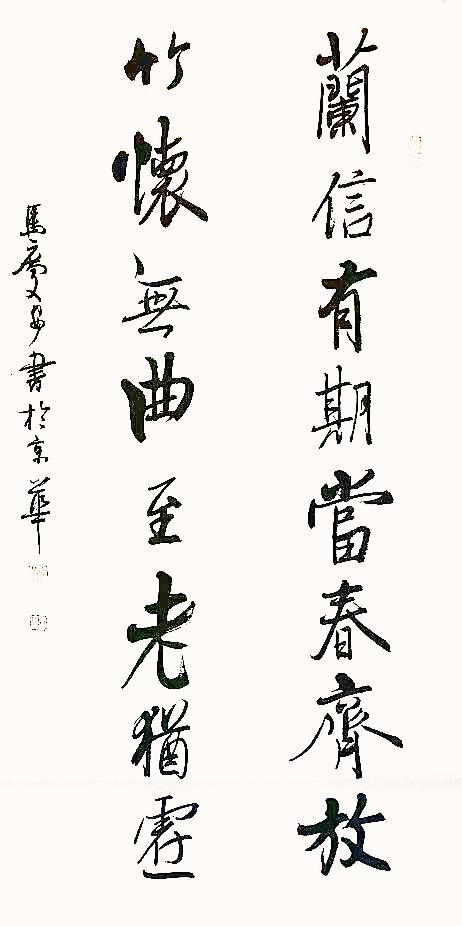 蘭信有期當春齊放
竹懷無曲至老猶虛
馬慶安書於京華